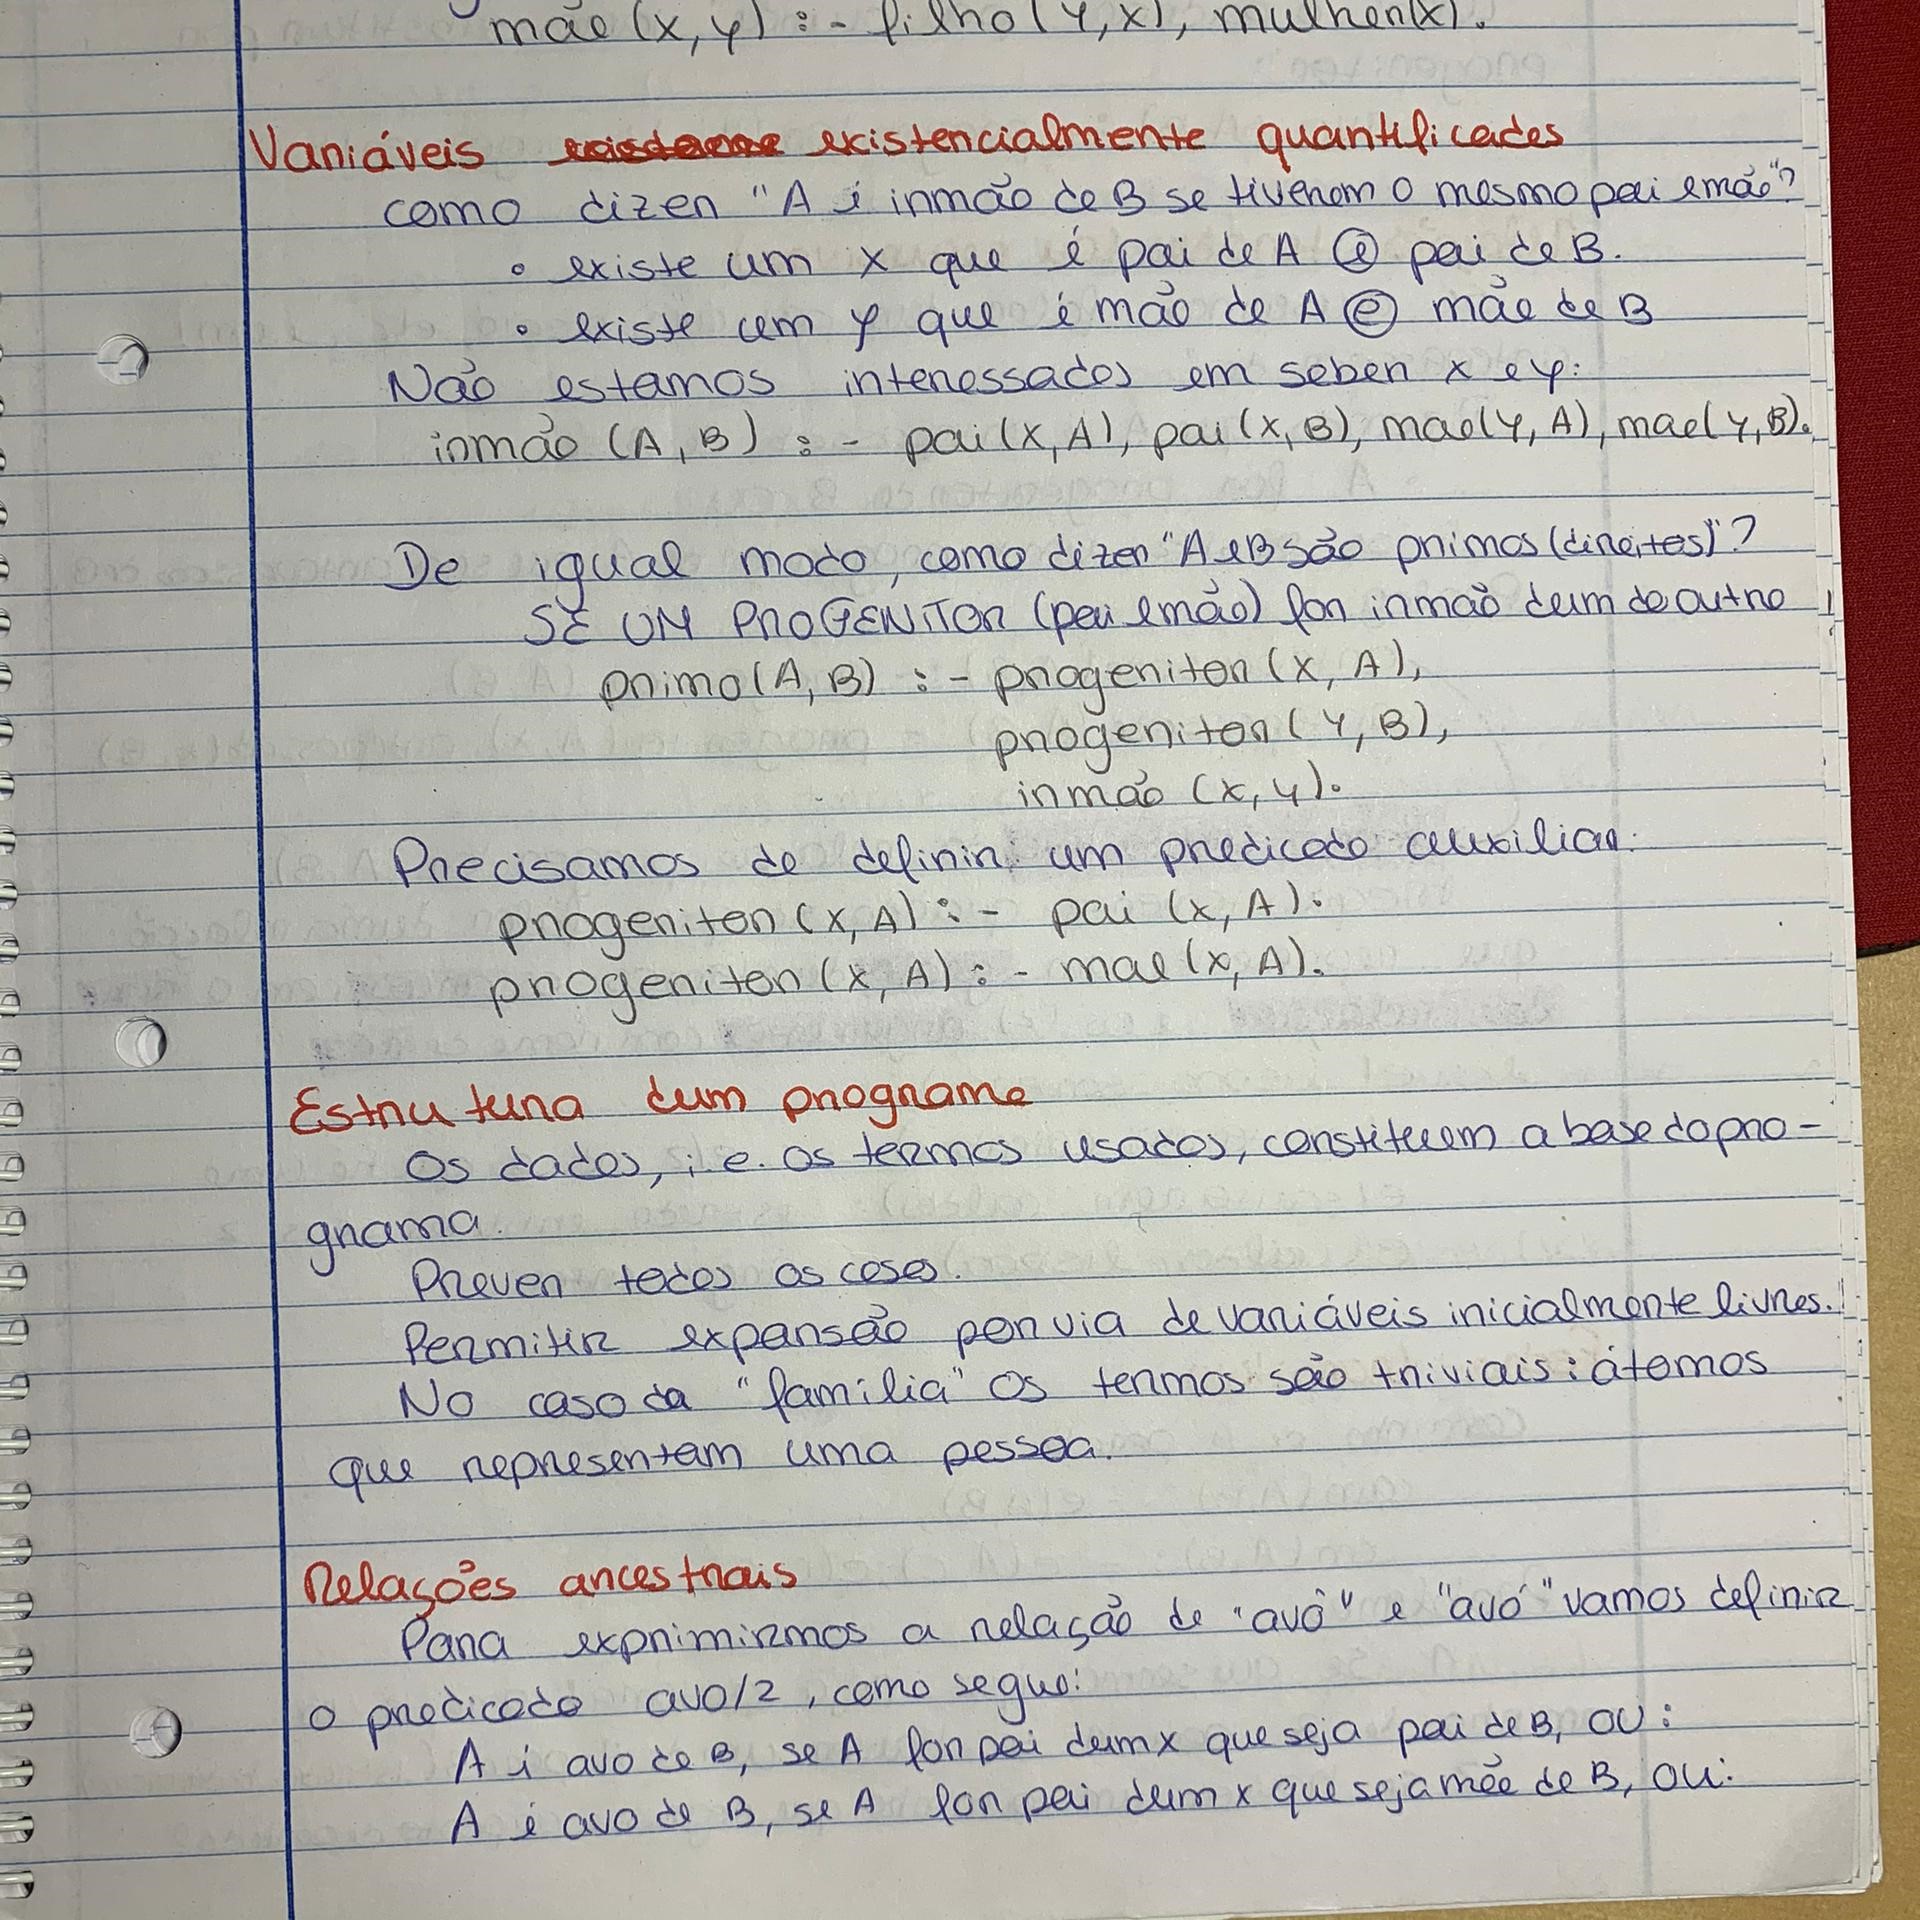 mãe (X, Y) :- filho (Y, X), mulher(X).
Variáveis existencialmente quantificadas
como dizer "A é irmão de B se tiverem o mesmo pai e mãe"?
• existe um X que é pai de A e pai de B.
• existe um Y que é mãe de A e mãe de B
Não estamos interessados em saber X e Y:
irmão (A, B) :- pai (X, A), pai (X, B), mae(Y, A), mae(Y, B).
De igual modo, como dizer "A e B são primos (direitos)"?
SE UM PROGENITOR (pai e mãe) for irmão dum do outro
primo(A, B) :- progenitor (X, A),
progenitor (Y, B),
irmão (X, Y).
Precisamos de definir um predicado auxiliar:
progenitor (X, A) :- pai (X, A).
progenitor (X, A) :- mae (X, A).
Estrutura dum programa
Os dados, i.e. os termos usados, constituem a base do pro-
grama.
Prever todos os casos.
Permitir expansão por via de variáveis inicialmente livres.
No caso da "família" os termos são triviais: átomos
que representam uma pessoa.
Relações ancestrais
Para exprimirmos a relação de "avô" e "avó" vamos definir
o predicado avo/2, como segue:
A é avo de B, se A for pai dum X que seja pai de B, OU:
A é avo de B, se A for pai dum X que seja mãe de B, OU: